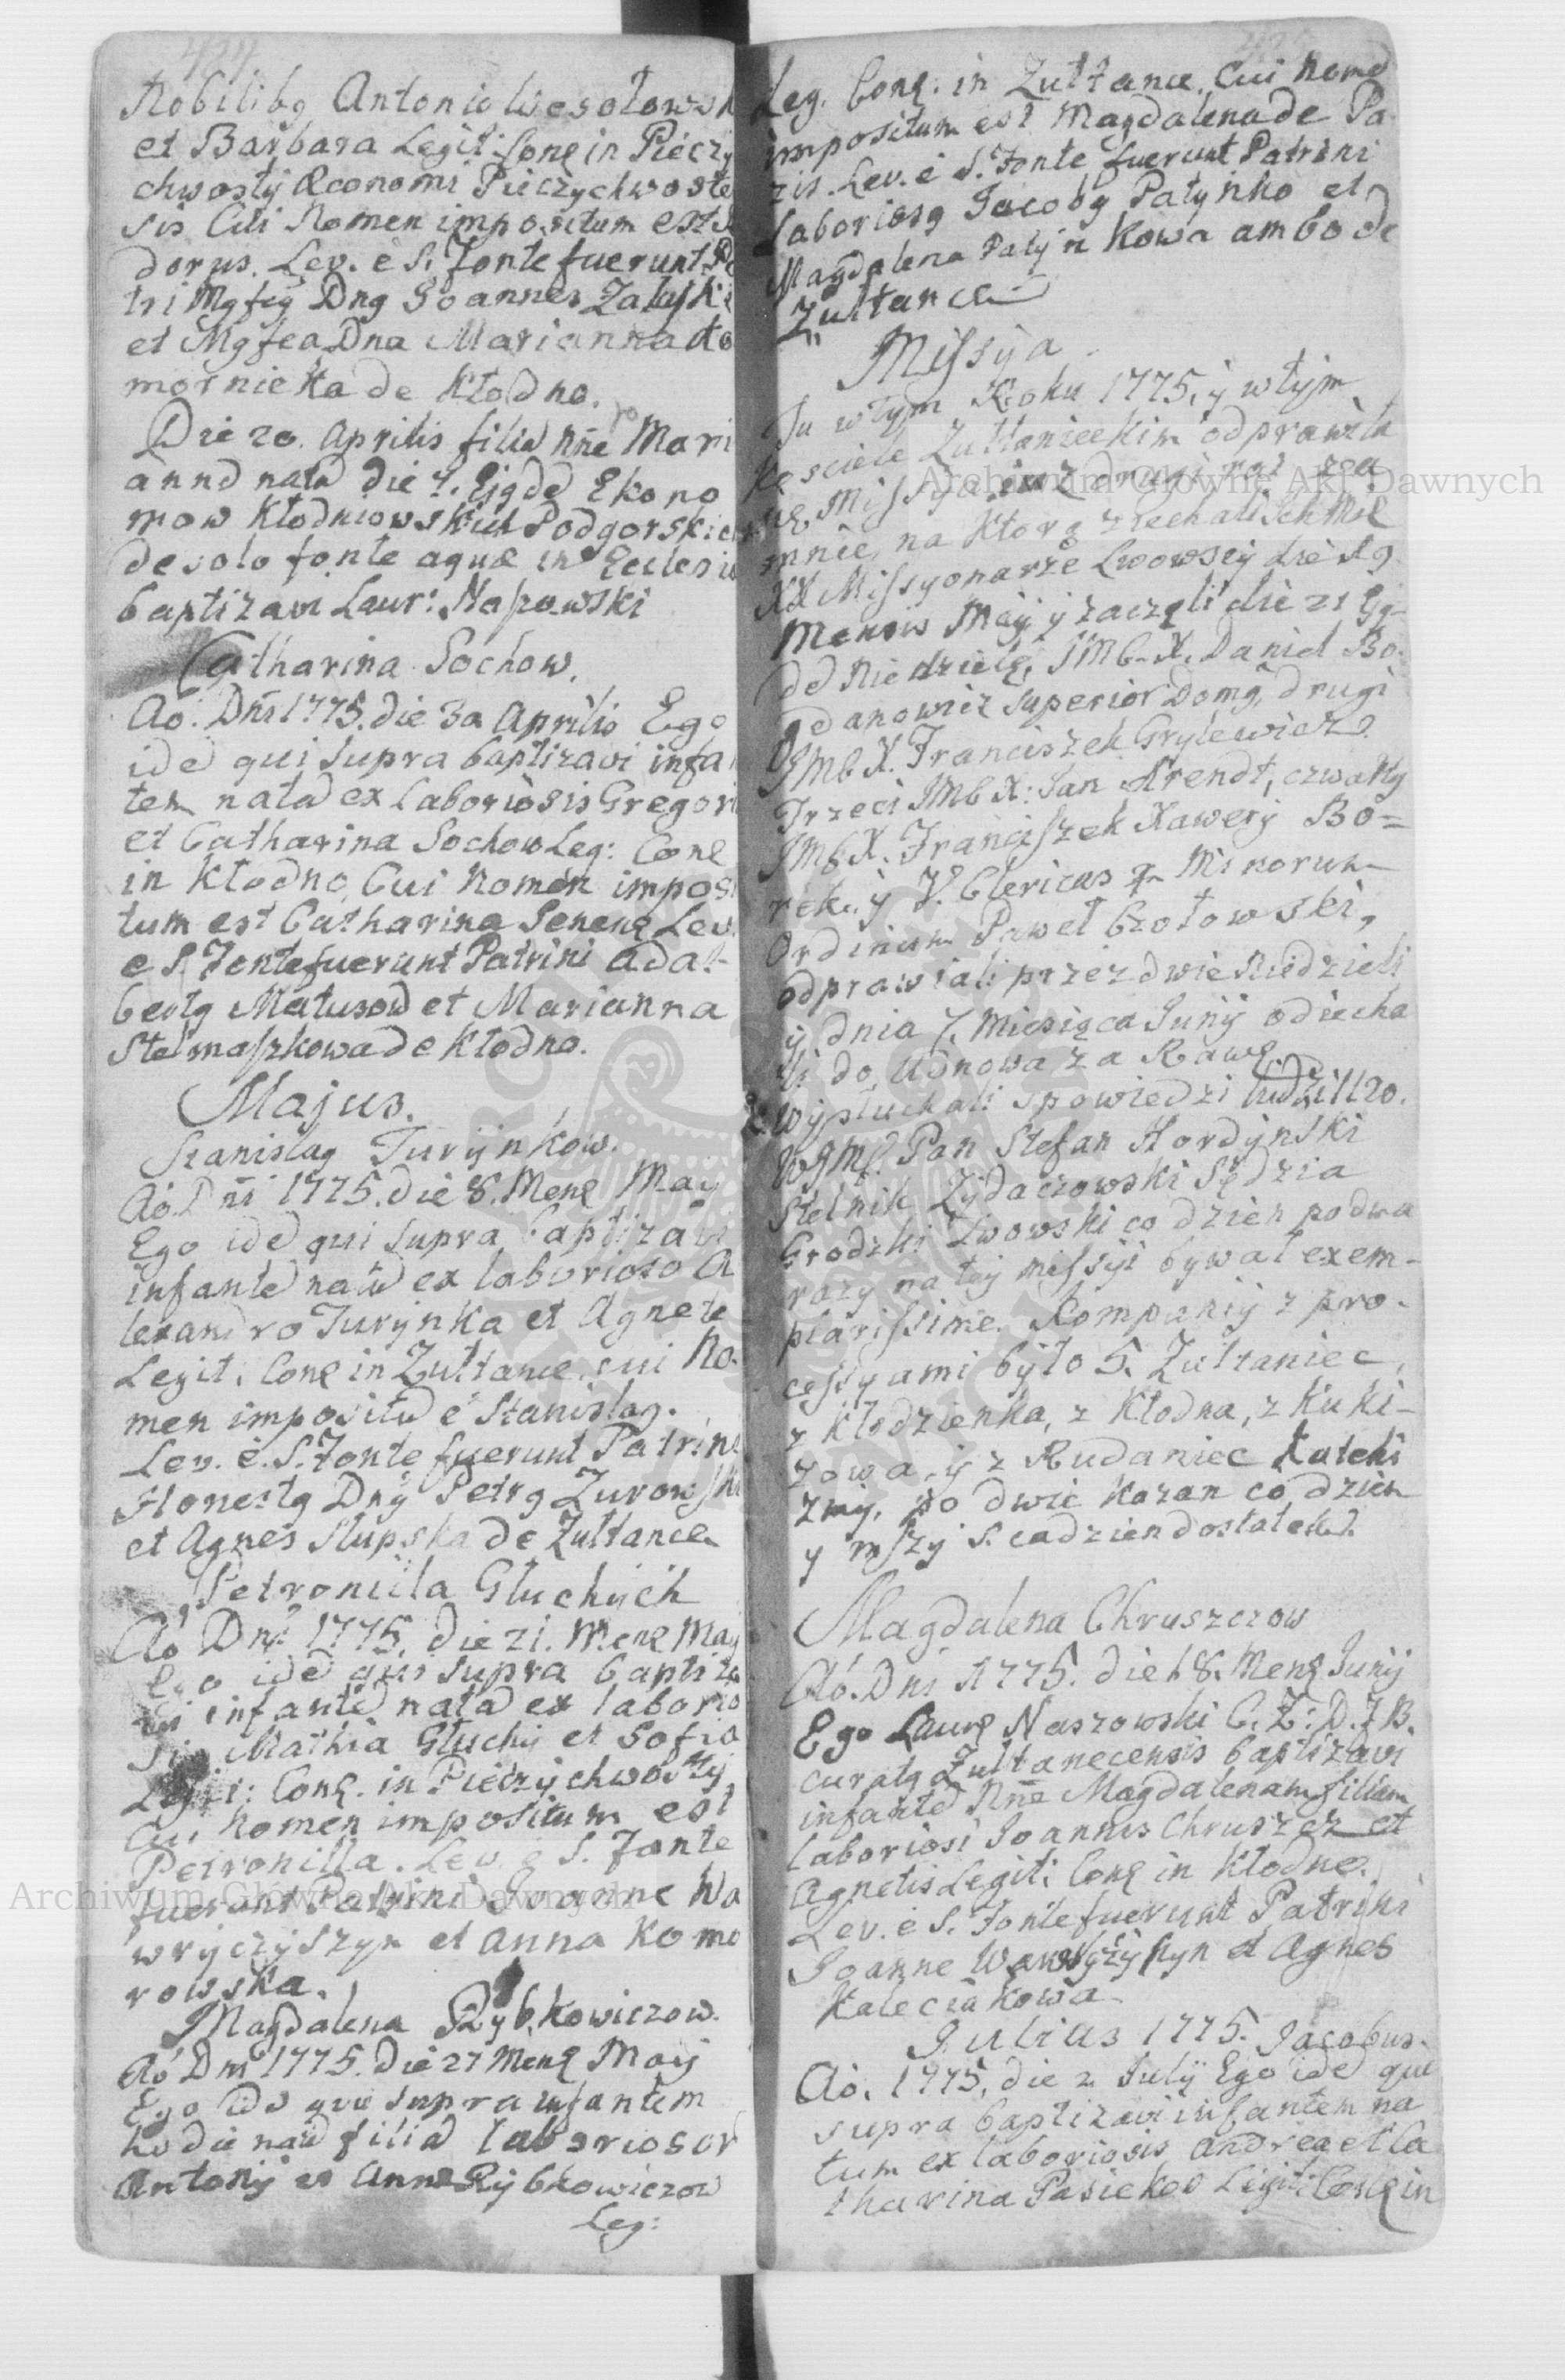 424
Nobilibg Antonio Wesołowsk
et Barbara Legit: Conę in Pieczy
chwosty Œconomi Pieczychwoste
sis Cui Nomen impositum est
dorus. Lev. è S. Fonte fuerunt
tri Mgfcg Dng Joannes Załuski
et Mgfca Dna Marianna
mornicka de Kłodno.
Die 20. Aprilis filiā Nñe Mari
annā natā die 7. Ejgdē Ekono
mow Kłodniowskich Podgorskich
de solo fonte aquæ in Ecclesia
baptizavi Laur: Naszowski
Catharina Sochow.
Aõ. Dñi 1775. die 3a Aprilis Ego
idē qui supra baptizavi infa
tem natā ex Laboriosis Gregori
et Catharina Sochow Leg: Conę
in Kłodno, Cui Nomen imposi
tum est Catharina Senenę Lev.
e S. Fonte fuerunt Patrini Adal-
bertg Matusow et Marianna
Stelmaszkowa de Kłodno.
Majus.
Stanislag Turynkow.
Aõ. Dñi 1775. die 8. Menę Maij
Ego idē qui supra baptizavi
infantē natū ex laborioso A
lexandro Turynka et Agnete
Legit. Conę in Zułtance cui No-
men impositū ē Stanislag.
Lev. è. S. Fonte fuerunt Patrini
Honestg Dng Petrg Zurowski
et Agnes Słupska de Zułtance
Petronilla Głuchych
Aõ Dni 1775. die 21. Menę Maij
Ego idē qui supra baptiza
vi infantē natā ex laborio
sis Mathia Głuchy et Sofia
Legit: Conę. in Pieczychwosty
Cui Nomen impositum est
Petronilla. Lev. e S. Fonte
fuerunt Patrini Joanne Wa
wryczyszyn et Anna Komo
rowska.
Magdalena Rybkowiczow.
Aõ Dni 1775. Die 27 Menę Maij
Ego idē qui supra infantem
hodie natā filiā laboriosor
Antonij et Anna Rybkowiczow
Leg:
Leg. Conę: in Zułtance, Cui Nomē
impositum est Magdalena de Pa-
zis. Lev. è S. Fonte fuerunt Patrini
Laboriosg Jacobg Patynko et
Magdalena Patynkowa ambo de
Zułtance
Missya
Tu w tym Roku 1775, y w tym
Kosciele Zułtanieckim odprawiła
się Missya iuż drugi raz za
mnie, na ktorą ziechali Ichmć
XX Missyonarze Lwowscy die 19
Mensis Maij y zaczęli die 21 Ejg-
dē Niedzielę, JMć X. Daniel Bo-
gdanowicz Superior Domg, drugi
JMć X. Franciszek Grylewicz.
Trzeci JMć X: Jan Arendt, czwarty
JMć X. Franciszek Xawery Bo=
rek. y V. Clericus Minorum
Ordinum Paweł Czotowski,
odprawiali przez dwie Niedzieli
y dnia 7. Miesiąca Junij odiecha
li do Udnowa za Rawę.
Wysłuchali spowiedzi ludzi 1120.
WJMć. Pan Stefan Hordynski
Stolnik Zydaczowski Sędzia
Grodzki Lwowski co dzien po dwa
razy na tey missyi bywał exem-
plarissime. Kompanij z pro-
cessyami było 5. Zułtaniec,
z Kłodzienka, z Kłodna, z Kuki-
zowa, y z Rudaniec Katechi
zmy, po dwie Kazan co dzien
y mszy S. co dzien dostatek.
Magdalena Chruszczow
Aõ. Dni 1775. die 18. Menę Junij
Ego Laurę Naszowski C. Z: D. J B.
curatg Zułtanecensis baptizavi
infantē Nñe Magdalenam filiam
laboriosi Joannis Chruszcz et
Agnetis Legit: Conę in Kłodne.
Lev. è S. Fonte fuerunt Patrini
Joanne Wawryczyszyn et Agnes
Kaleciakowa
Julius 1775. Jacobus.
Aõ. 1775. die 2 Julij Ego idē qui
supra baptizavi infantem na
tum ex laboriosis Andrea et Ca
tharina Pasieków Legit: Conę in
Archiwum Główne Akt Dawnych
Archiwum Główne Akt Dawnych